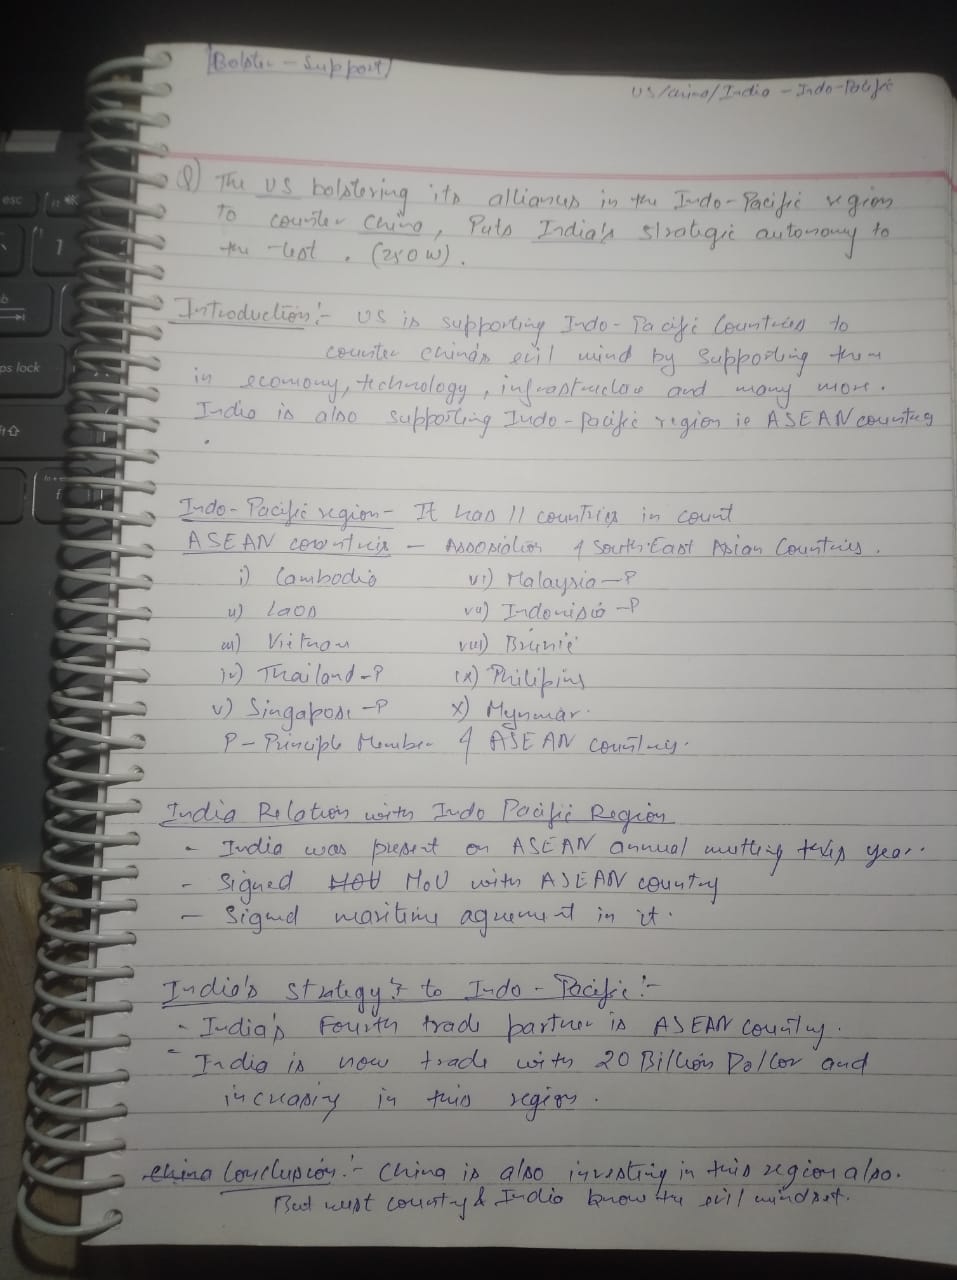 [Bolster - Support]
US/China/India - Indo-Pacific
Q) The US bolstering its alliances in the Indo-Pacific region
To counter China, Puts India's strategic autonomy to
the test. (250 W).
Introduction:- US is supporting Indo-Pacific Countries to
counter china's evil mind by supporting them
in economy, technology, infrastructure and many more.
India is also supporting Indo-pacific region ie ASEAN country
Indo-Pacific region- It has 11 countries in count
ASEAN countries - Assosiation of South East Asian Countries.
i) Cambodia vi) Malaysia - P
ii) Laos vii) Indonisia - P
iii) Vietnam viii) Brunie
iv) Thailand - P ix) Philipins
v) Singapore - P x) Mynmar.
P - Principle Member of ASEAN country.
India Relation with Indo Pacific Region
- India was present on ASEAN annual meeting this year.
- Signed MOU MoU with ASEAN country
- Signed maritime agreement in it.
India's Strategy to Indo-Pacific:-
- India's Fourth trade partner is ASEAN country.
- India is now trade with 20 Billion Dollor and
increasing in this region.
China Conclusion:- China is also investing in this region also.
But west country & India know the evil mindset.